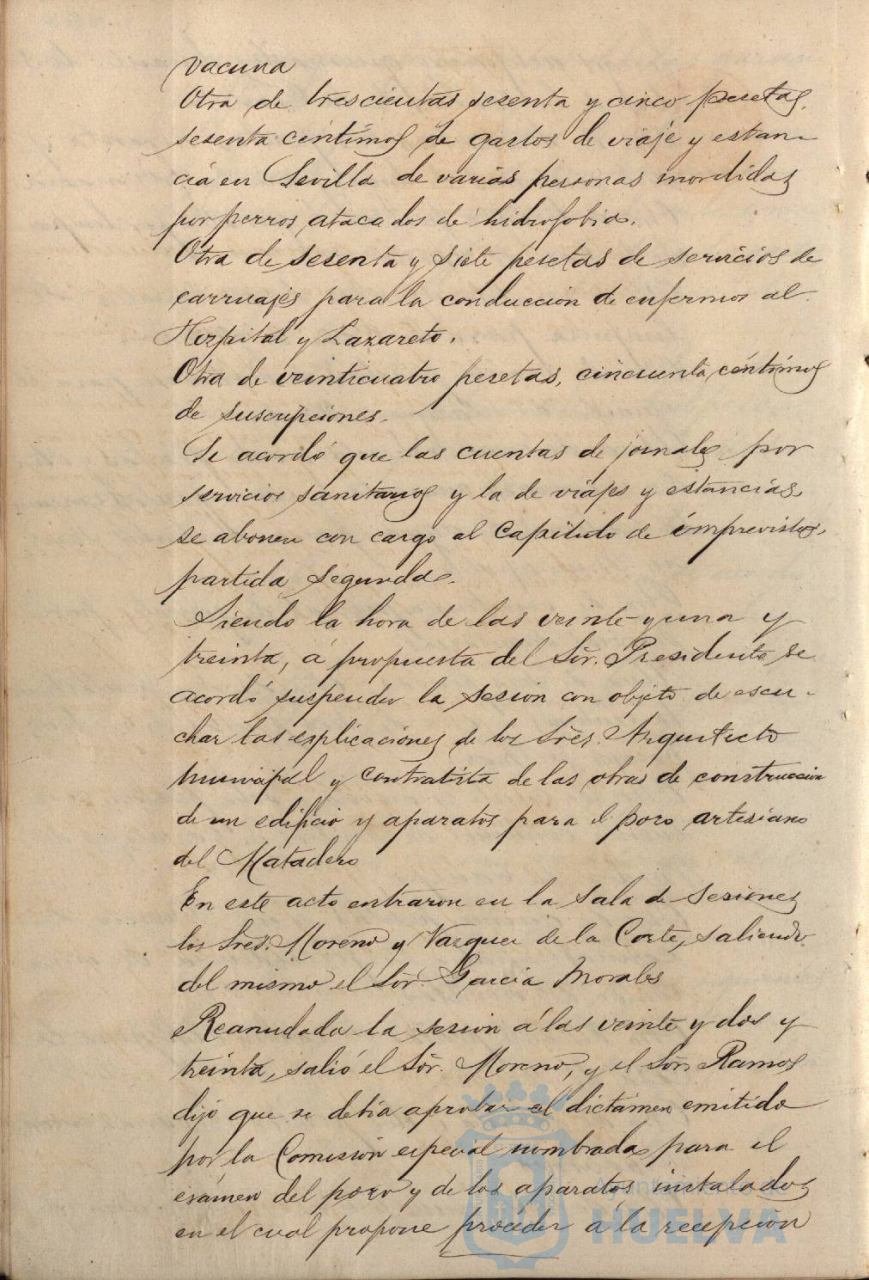 vacuna
Otra de trescientas sesenta y cinco pesetas,
sesenta céntimos de gastos de viaje y estan-
cia en Sevilla de varias personas mordidas
por perros atacados de hidrofobia.
Otra de sesenta y siete pesetas de servicios de
carruajes para la conducción de enfermos al
Hospital y Lazareto.
Otra de veinticuatro pesetas, cincuenta céntimos
de suscripciones.
Se acordó que las cuentas de jornales por
servicios sanitarios y la de viajes y estancias,
se abonen con cargo al Capitulo de imprevistos,
partida segunda.
Siendo la hora de las veinte y una y
treinta, á propuesta del Sör. Presidente se
acordó suspender la sesion con objeto de escu-
char las esplicaciones de los Sres. Arquitecto
municipal y contratista de las obras de construccion
de un edificio y aparatos para el pozo artesiano
del Matadero
En este acto entraron en la sala de sesiones
los Sres. Moreno y Vazquez de la Corte, saliendo
del mismo el Sör. Garcia Morales
Reanudada la sesion á las veinte y dos y
treinta, salió el Sör. Moreno, y el Sör. Ramos
dijo que se debia aprobar el dictámen emitido
por la Comisión especial nombrada para el
exámen del pozo y de los aparatos instalados
en el cual propone proceder á la recepción
Ayuntamiento de
HUELVA